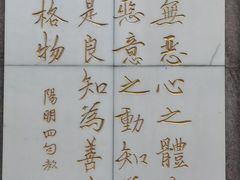 無惡心之體
惡意之動知
是良知為善
格物
陽明四句教